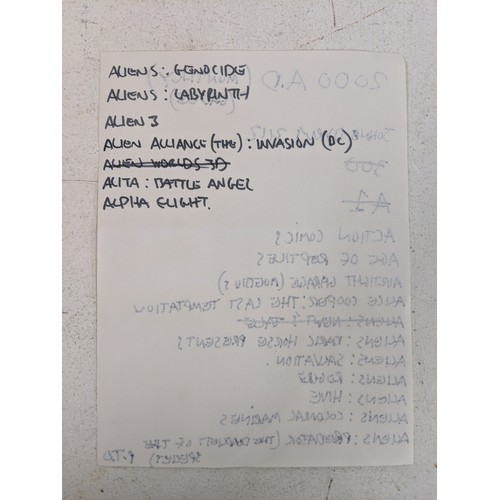 ALIENS: GENOCIDE
ALIENS: LABYRINTH
ALIEN 3
ALIEN ALLIANCE (THE): INVASION (DC)
ALIEN WORLDS 3D
ALITA: BATTLE ANGEL
ALPHA FLIGHT.
2000 A.D
300
A1
ACTION COMICS
AGE OF REPTILES
AIRTIGHT GARAGE (MOEBIUS)
ALICE COOPER: THE LAST TEMPTATION
ALIENS: DARK HORSE PRESENTS
ALIENS: SALVATION.
ALIENS: ROGUE
ALIENS: HIVE
ALIENS: COLONIAL MARINES
ALIENS: PREDATOR (THE DEADLIEST OF THE
SPECIES) P.T.O